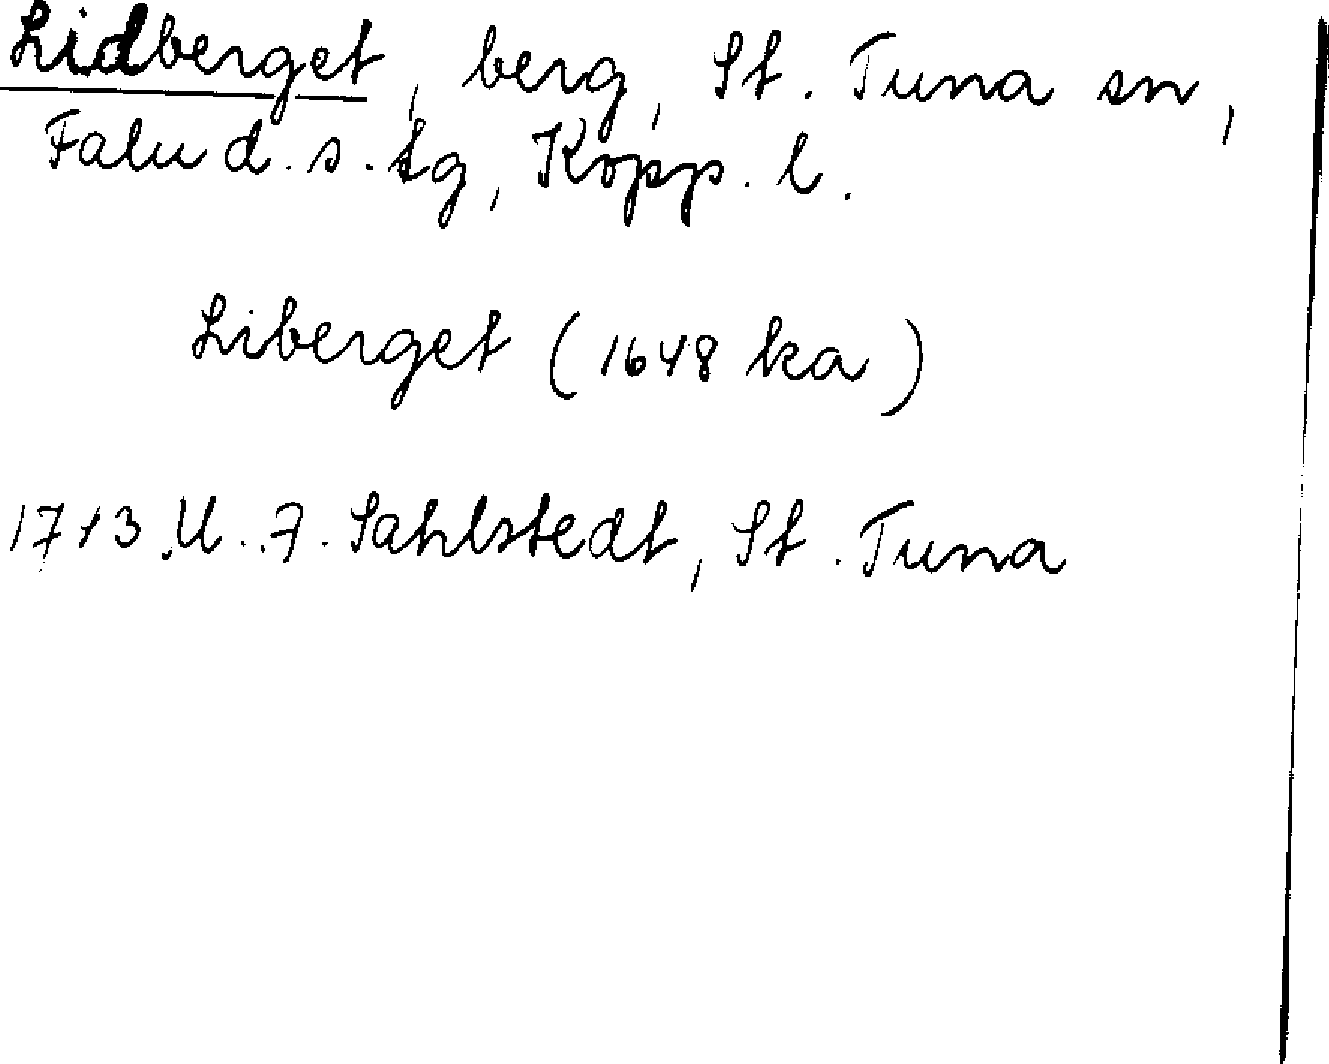 Lidberget, berg, St. Tuna sn,
Falu d. s. tg, Kopp. l.
Liberget (1648 ka)
1713 U. F. Sahlstedt, St. Tuna